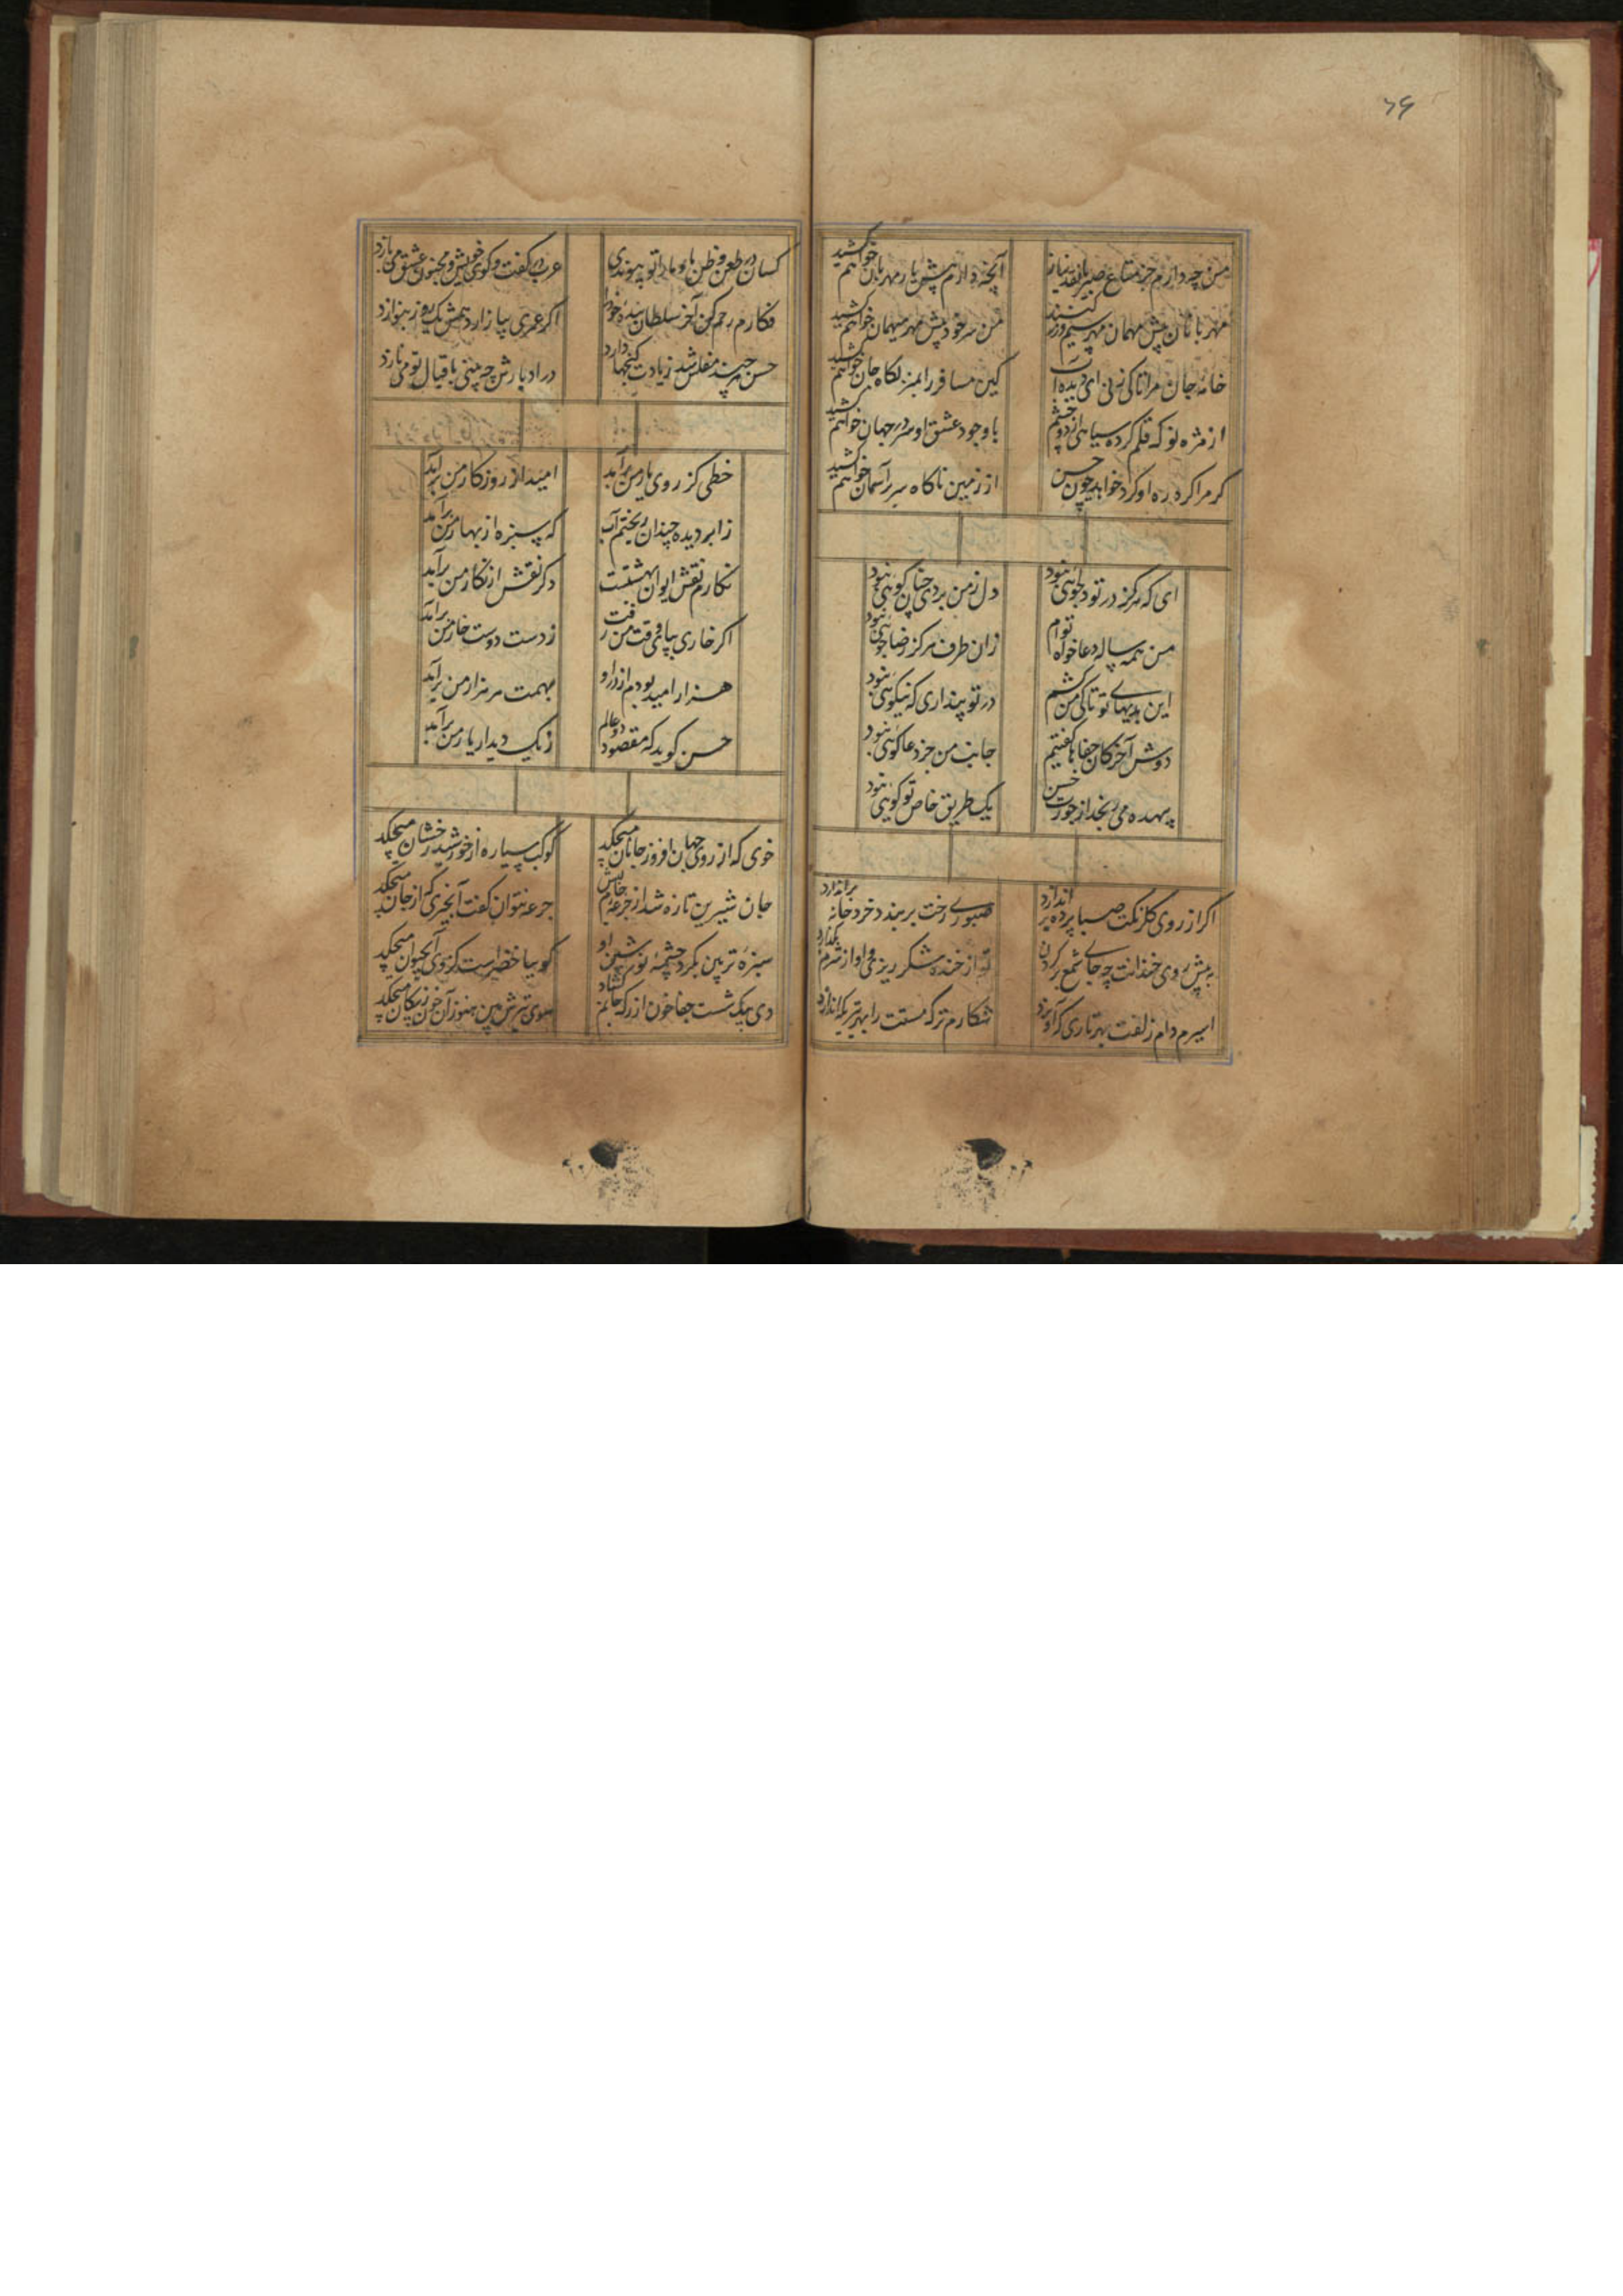 ۷۶
من چه دارم جز متاع صبر یا نقد نیاز
آنچه دارم پیش یار مهربان خواهم کشید
مهربانان پیش مهمان مهر سیم و زر کشند
من سر خود پیش مهر میهمان خواهم کشید
خانه جان مرا تاکی نی ای دیده آب
کین مسافر را بمنزلکاه جان خواهم کشید
از مژه نوک قلم کرده سیاهی از دو چشم
با وجود عشق او سر در جهان خواهم کشید
کر مرا کرد ره او کرد خواند چون حسن
از زمین ناکاه سر بر آسمان خواهم کشید
ای که هرکز در تو دلجوئی نبود
دل ز من بردی چنان کوئی نبود
من همه ساله دعا خواه توام
زان طرف هرکز رضا جوئی نبود
این بدیهای تو تا کی من کشم
در تو پنداری که نیکوئی نبود
دوش آخر کان جفاها کفتیم
جانب من جز دعا کوئی نبود
بیهده می رنجد از جورت حسن
یک طریق خاص تو کوئی نبود
اگر از روی کلرنکت صبا پرده بر اندازد
صبوری رخت بربندد خرد خانه براندازد
به پیش روی خندانت چه جای شمع بر کردن
تو از خنده شکر ریزی و او از شرم بکدازد
اسیرم دام زلفت بهر تاری که آویزد
شکارم ترک مستت را بهر تیری که اندازد
کسان در طعن و طنز ما و ما را تو پیوندی
عرب در کفت و کوی خویش و مجنون عشق می بازد
فکارم رحم کن آخر سلطان بنده خود را
اگر عمری بیازارد همش یک روز بنوازد
حسن هر چند مفلس شد زیادت کنجها دارد
در ادبارش چه می بینی باقبال تو می نازد
خطی کز روی یار من برآمد
امید از روزکار من برآمد
ز ابر دیده چندان ریختم آب
که سبزه از بهار من برآمد
نکارم نقش ایوان بهشتست
دکر نقش از نکار من برآمد
اگر خاری بپای وقت من رفت
ز دست دوست خار من برآمد
هزار امید بودم از در او
بهمت هر هزار من برآمد
حسن کوید که مقصود دو عالم
ز یک دیدار یار من برآمد
خوی که از روی جهان افروز جانان میچکد
کوکب سیاره از خورشید رخشان میچکد
جان شیرین تازه شد از جرعه جام لبش
جرعه نتوان کفت آنچیزی که از جان میچکد
سبزه تر بین بکرد چشمه نوشین او
کوییا خضر است کز وی آب حیوان میچکد
دی بیک شست جفا خون از رک جانم کشاد
سوی تیرش بین هنوز آن خون ز پیکان میچکد